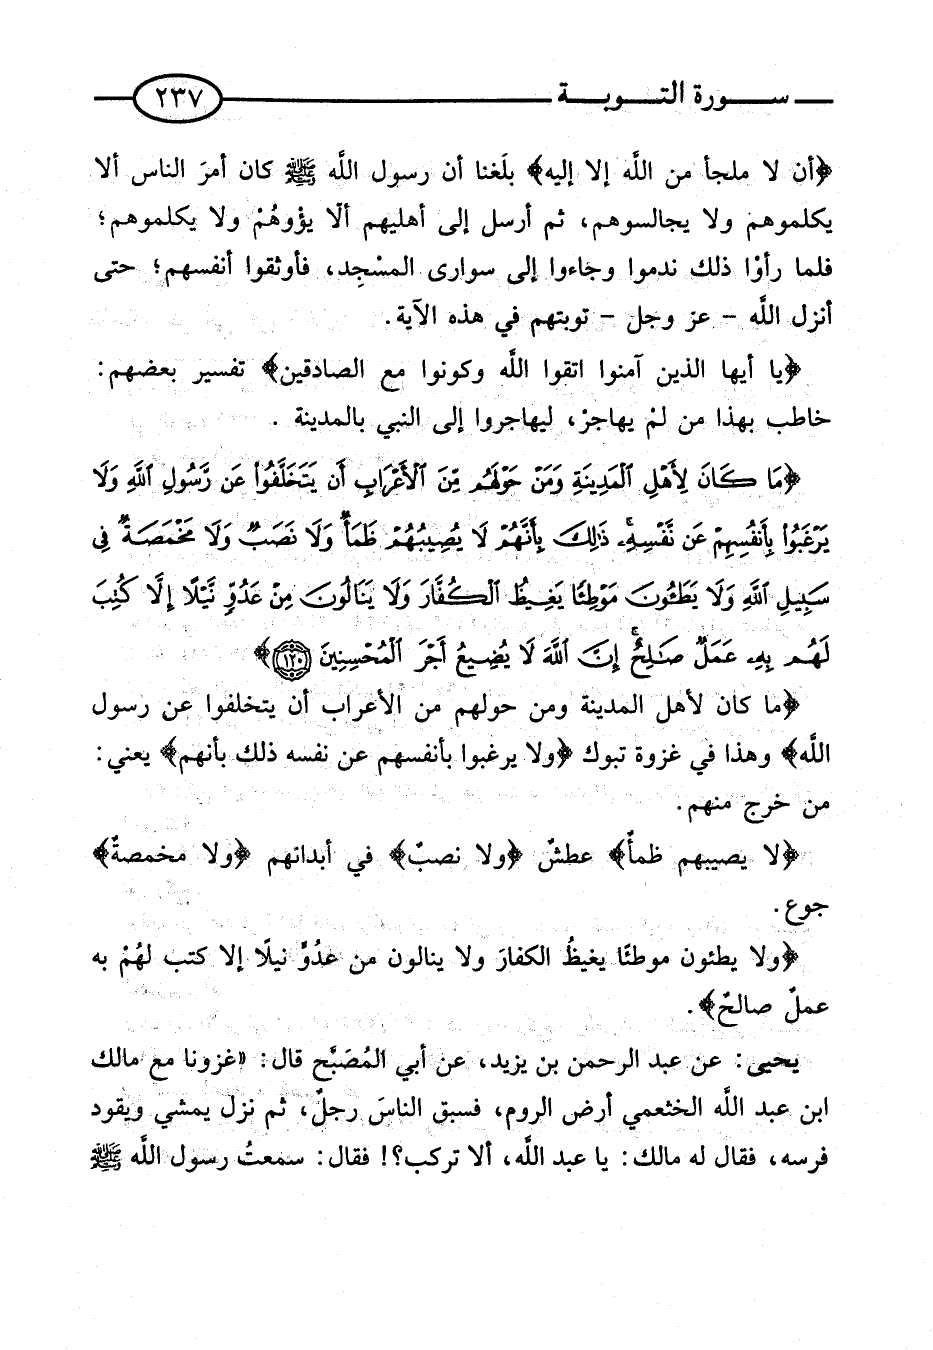 سـورة التـوبـة ٢٣٧
﴿أن لا ملجأ من اللَّه إلا إليه﴾ بلَغنا أن رسول اللَّه ﷺ كان أمرَ الناس ألا
يكلموهم ولا يجالسوهم، ثم أرسل إلى أهليهم ألّا يؤْوهُمْ ولا يكلموهم؛
فلما رأوْا ذلك ندموا وجاءوا إلى سوارى المسْجِد، فأوثقوا أنفسهم؛ حتى
أنزل اللَّه – عز وجل – توبتهم في هذه الآية.
﴿يا أيها الذين آمنوا اتقوا اللَّه وكونوا مع الصادقين﴾ تفسير بعضهم:
خاطب بهذا من لمْ يهاجرْ، ليهاجروا إلى النبي بالمدينة .
﴿مَا كَانَ لِأَهْلِ ٱلْمَدِينَةِ وَمَنْ حَوْلَهُم مِّنَ ٱلْأَعْرَابِ أَن يَتَخَلَّفُوا۟ عَن رَّسُولِ ٱللَّهِ وَلَا
يَرْغَبُوا۟ بِأَنفُسِهِمْ عَن نَّفْسِهِۦ ۚ ذَٰلِكَ بِأَنَّهُمْ لَا يُصِيبُهُمْ ظَمَأٌ وَلَا نَصَبٌ وَلَا مَخْمَصَةٌ فِى
سَبِيلِ ٱللَّهِ وَلَا يَطَـُٔونَ مَوْطِئًا يَغِيظُ ٱلْكُفَّارَ وَلَا يَنَالُونَ مِنْ عَدُوٍّ نَّيْلًا إِلَّا كُتِبَ
لَهُم بِهِۦ عَمَلٌ صَـٰلِحٌ ۚ إِنَّ ٱللَّهَ لَا يُضِيعُ أَجْرَ ٱلْمُحْسِنِينَ ١٢٠﴾
﴿ما كان لأهل المدينة ومن حولهم من الأعراب أن يتخلفوا عن رسول
اللَّه﴾ وهذا في غزوة تبوك ﴿ولا يرغبوا بأنفسهم عن نفسه ذلك بأنهم﴾ يعني:
من خرج منهم.
﴿لا يصيبهم ظمأٌ﴾ عطشٌ ﴿ولا نصبٌ﴾ في أبدانهم ﴿ولا مخمصةٌ﴾
جوع.
﴿ولا يطئون موطئًا يغيظُ الكفارَ ولا ينالون من عدُوٍّ نيلًا إلا كتب لهُمْ به
عملٌ صالحٌ﴾.
يحيى: عن عبد الرحمن بن يزيد، عن أبي المُصَبَّح قال: «غزونا مع مالك
ابن عبد اللَّه الخثعمي أرض الروم، فسبق الناسَ رجلٌ، ثم نزل يمشي ويقود
فرسه، فقال له مالك: يا عبد اللَّه، ألا تركب؟! فقال: سمعتُ رسول اللَّه ﷺ